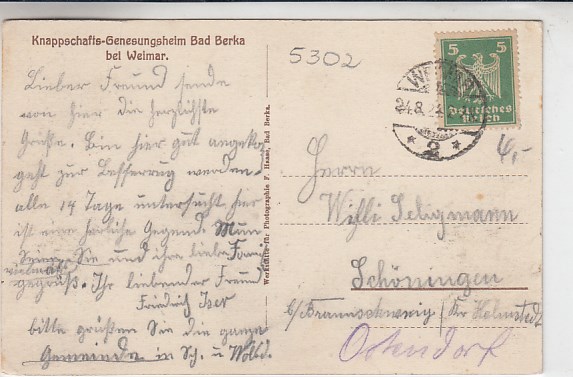 Knappschafts-Genesungsheim Bad Berka
bei Weimar.
Lieber Freund sende
von hier die herzlichste
Grüße. Bin hier gut angekom
geht zur Besserrug werden
alle 14 Tage untersucht hier
ist eine herliche Gegend. Nun
Seien Sie und ihre liebe Fami
vielmals
gegrüß. Ihr liebender Freund
Friedrich Iser
bitte grüßen Sie die ganze
Gemeinde in Sch. u Wolbd.
Werkstätte für Photographie F. Haase, Bad Berka.
5302
5 5
Deutsches
Reich
24.8.
* 2 *
4,-
Herrn
Willi Seligmann
Schöningen
b/Braunschweig/Kr Helmstedt
Ostendorf